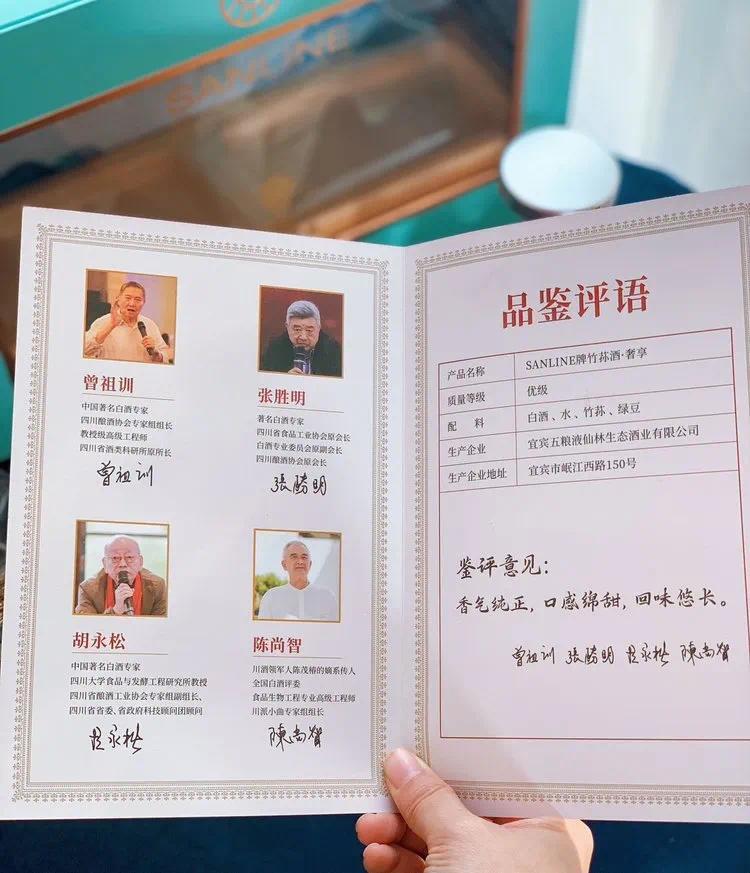 SANLINE
曾祖训
中国著名白酒专家
四川酿酒协会专家组组长
教授级高级工程师
四川省酒类科研所原所长
曾祖训
张胜明
著名白酒专家
四川省食品工业协会原会长
白酒专业委员会原副会长
四川酿酒协会原会长
張勝明
胡永松
中国著名白酒专家
四川大学食品与发酵工程研究所教授
四川省酿酒工业协会专家组副组长、
四川省省委、省政府科技顾问团顾问
陈尚智
川酒领军人陈茂椿的嫡系传人
全国白酒评委
食品生物工程专业高级工程师
川派小曲专家组组长
陳尚智
品鉴评语
产品名称 SANLINE牌竹荪酒·奢享
质量等级 优级
配 料 白酒、水、竹荪、绿豆
生产企业 宜宾五粮液仙林生态酒业有限公司
生产企业地址 宜宾市岷江西路150号
鉴评意见：
香气纯正，口感绵甜，回味悠长。
曾祖训 張勝明 陳尚智